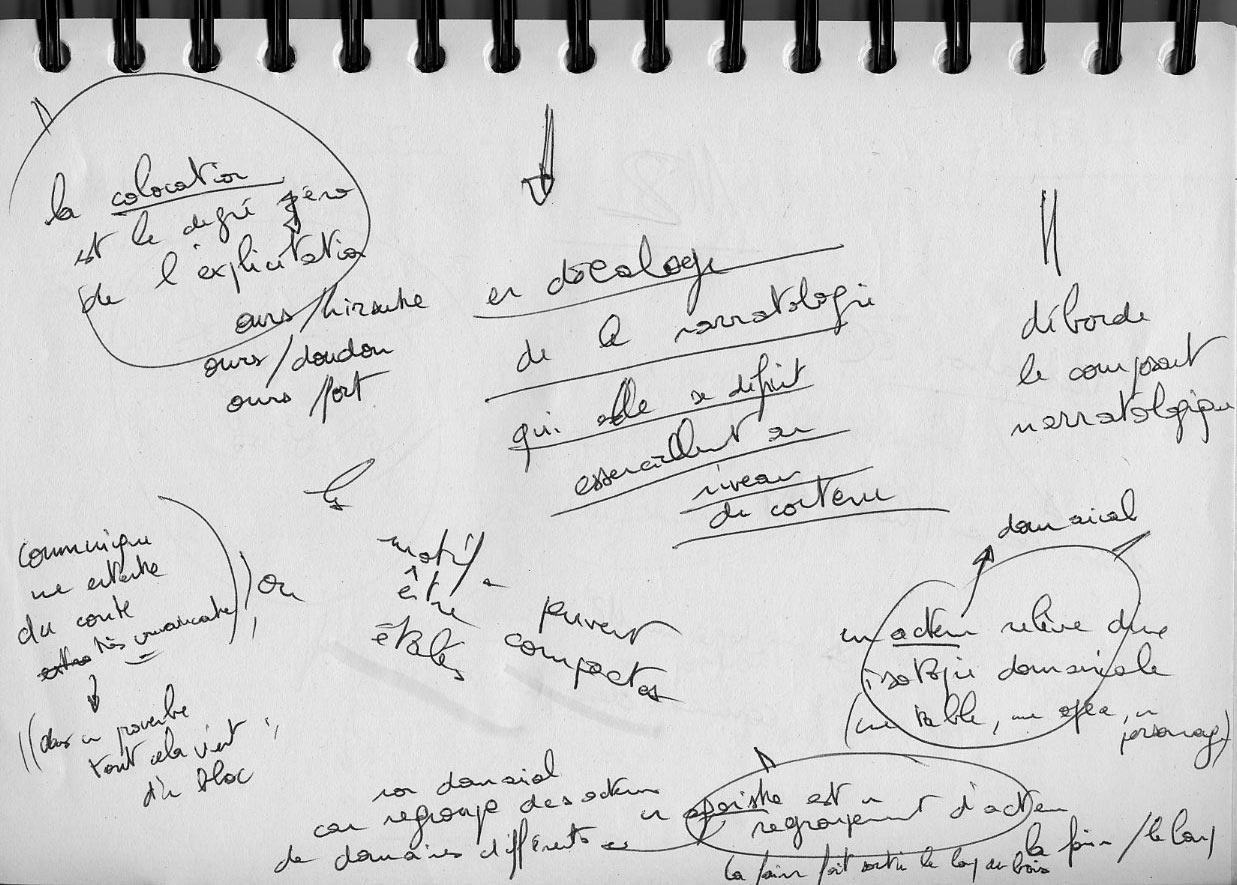 la colocation
est le degré zéro
de l'explicitation
ours/hirsute
ours/doudou
ours/fort
en décalage
de la narratologie
qui elle se définit
au
niveau
du contenu
déborde
le composant
narratologique
communique
une
du conte
très
dans un proverbe
tout cela vient
d'un bloc
ou
motifs
être
étalés
peuvent
compactes
domanial
un acteur relève d'une
isotopie domaniale
(une table, une
personnage)
non domanial
car regroupe des acteurs
de domaines différents
un est un
regroupement d'acteurs
la faim / le loup
la faim fait sortir le loup du bois